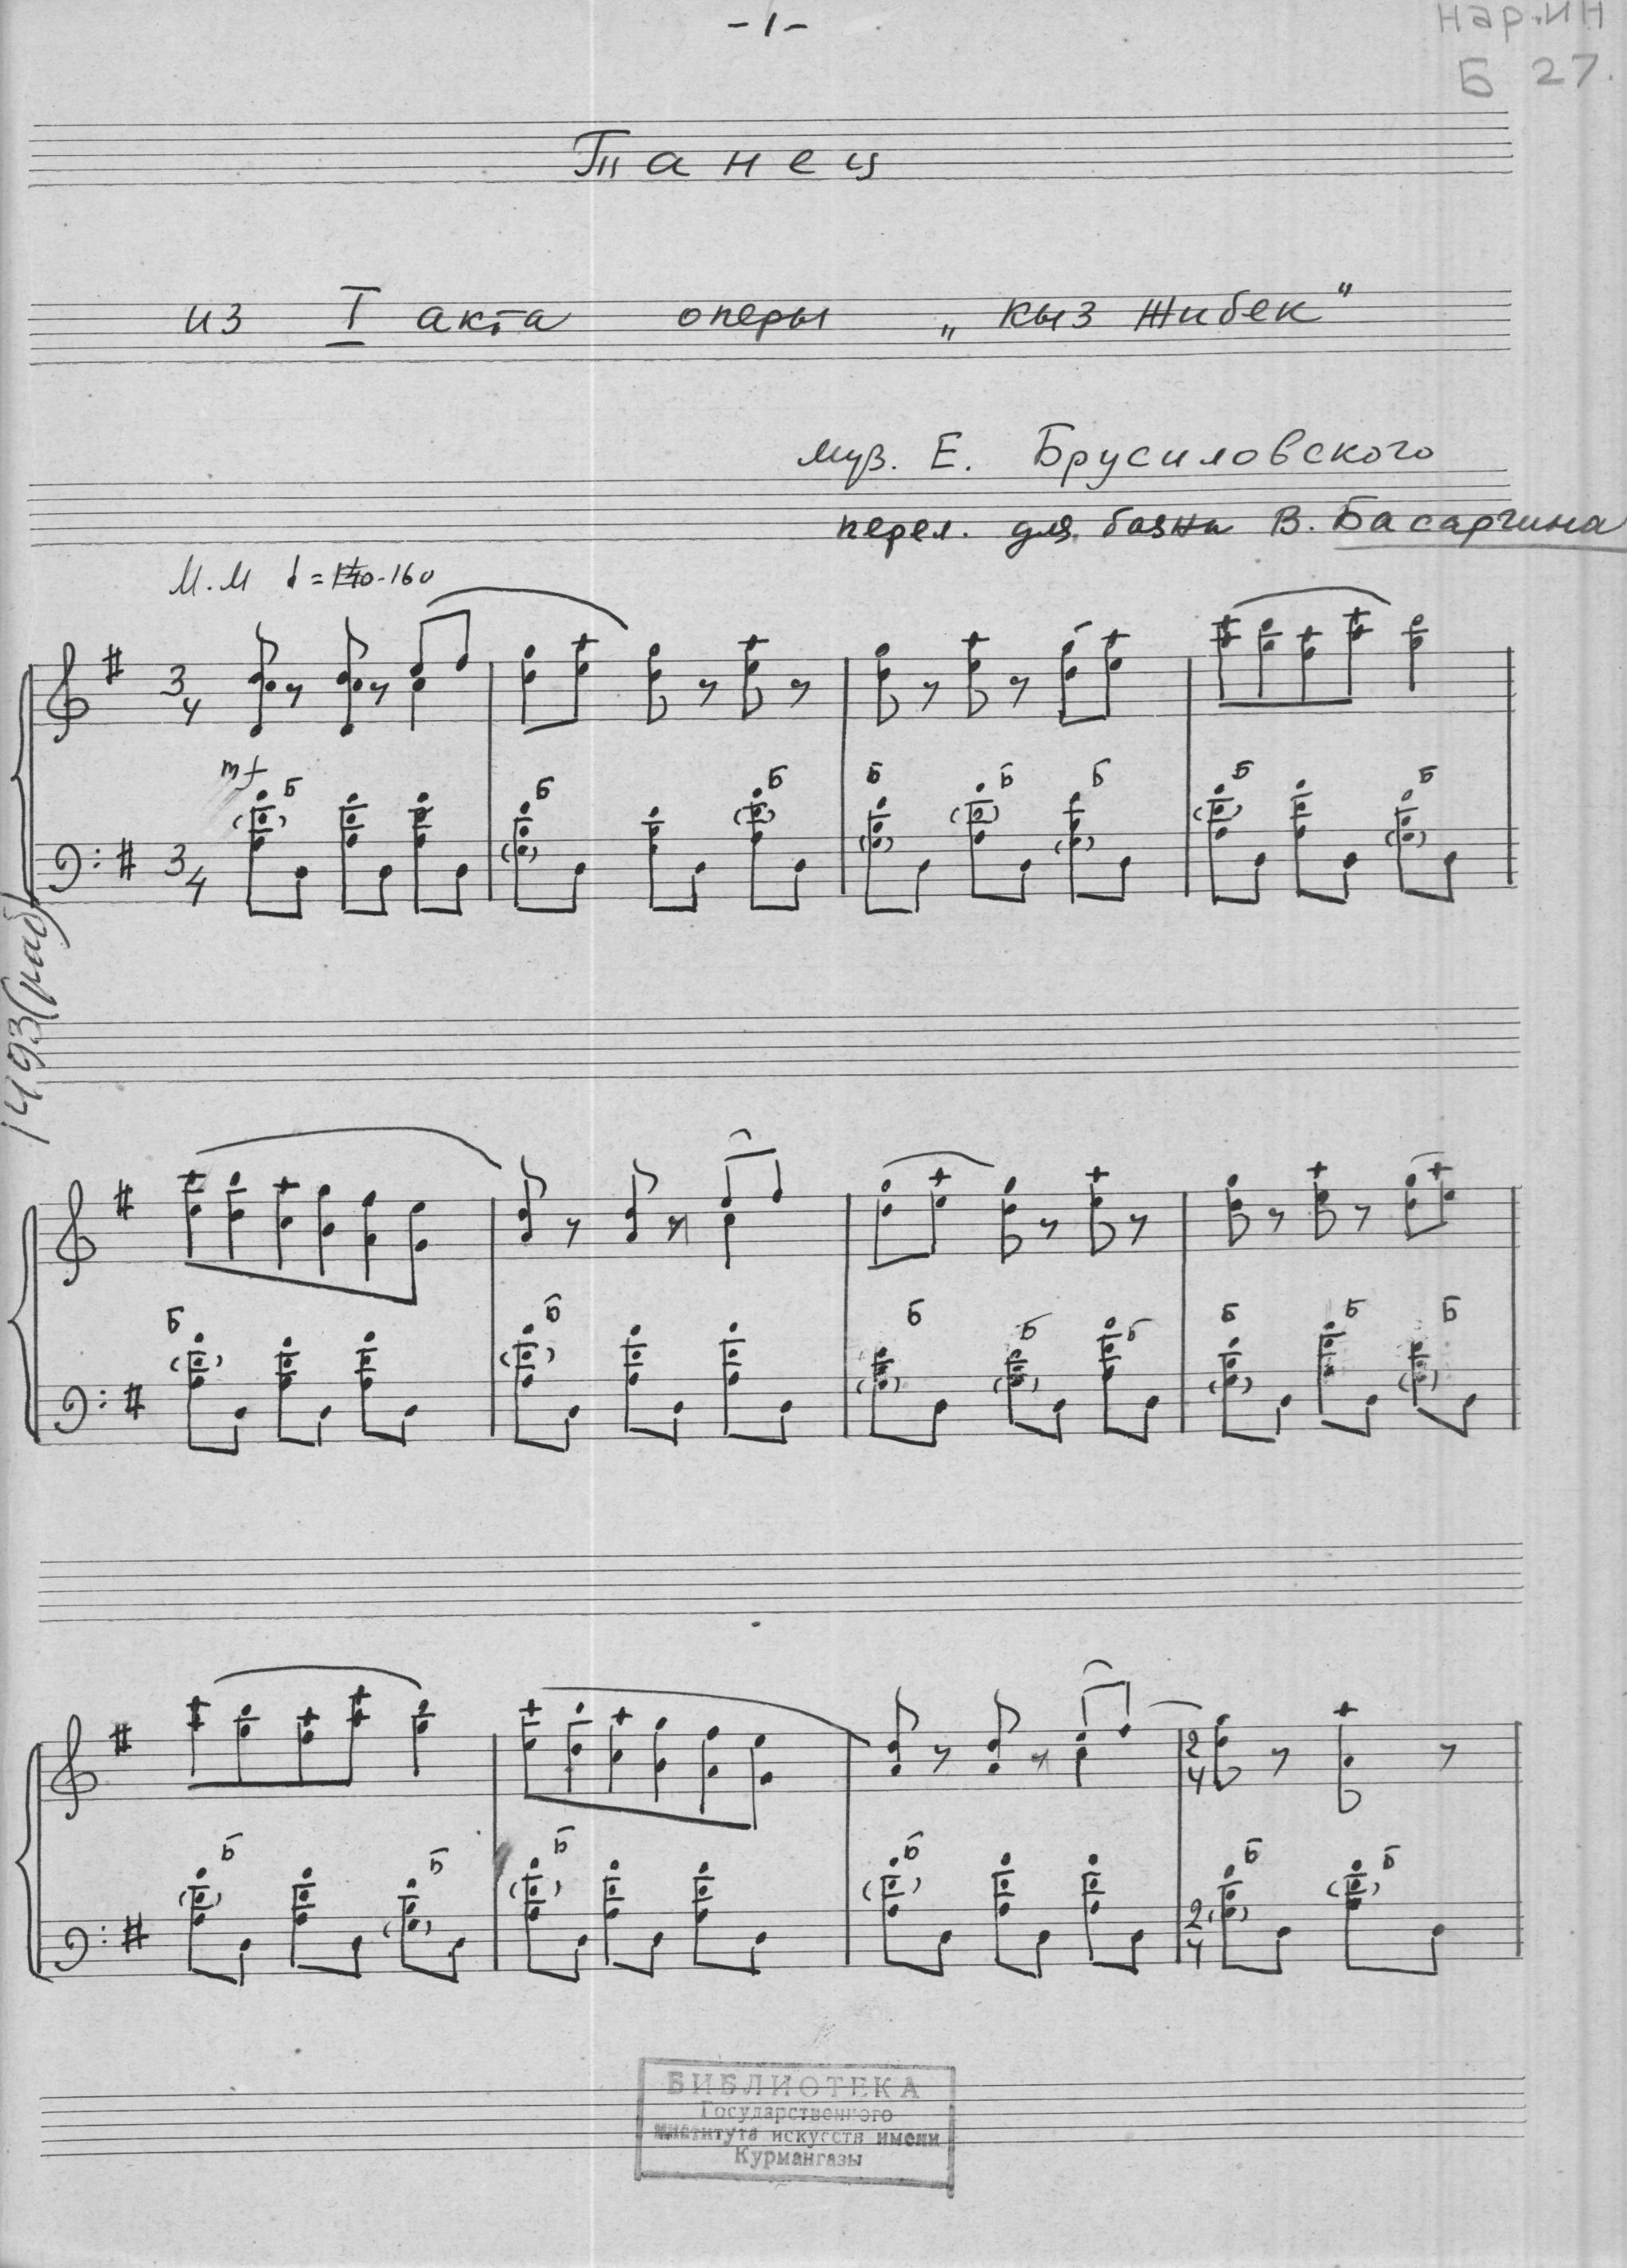 -1-
нар.ин
Б 27.
Танец
из I акта оперы „Кыз Жибек“
муз. Е. Брусиловского
перел. для баяна В. Басаргина
М.М ♩=140-160
3/4
mf
Б Б Б Б Б Б Б Б
3/4
1493(наб)
Б Б Б Б Б Б Б Б
2/4
Б Б Б Б Б Б
2/4
БИБЛИОТЕКА
Государственного
института искусств имени
Курмангазы